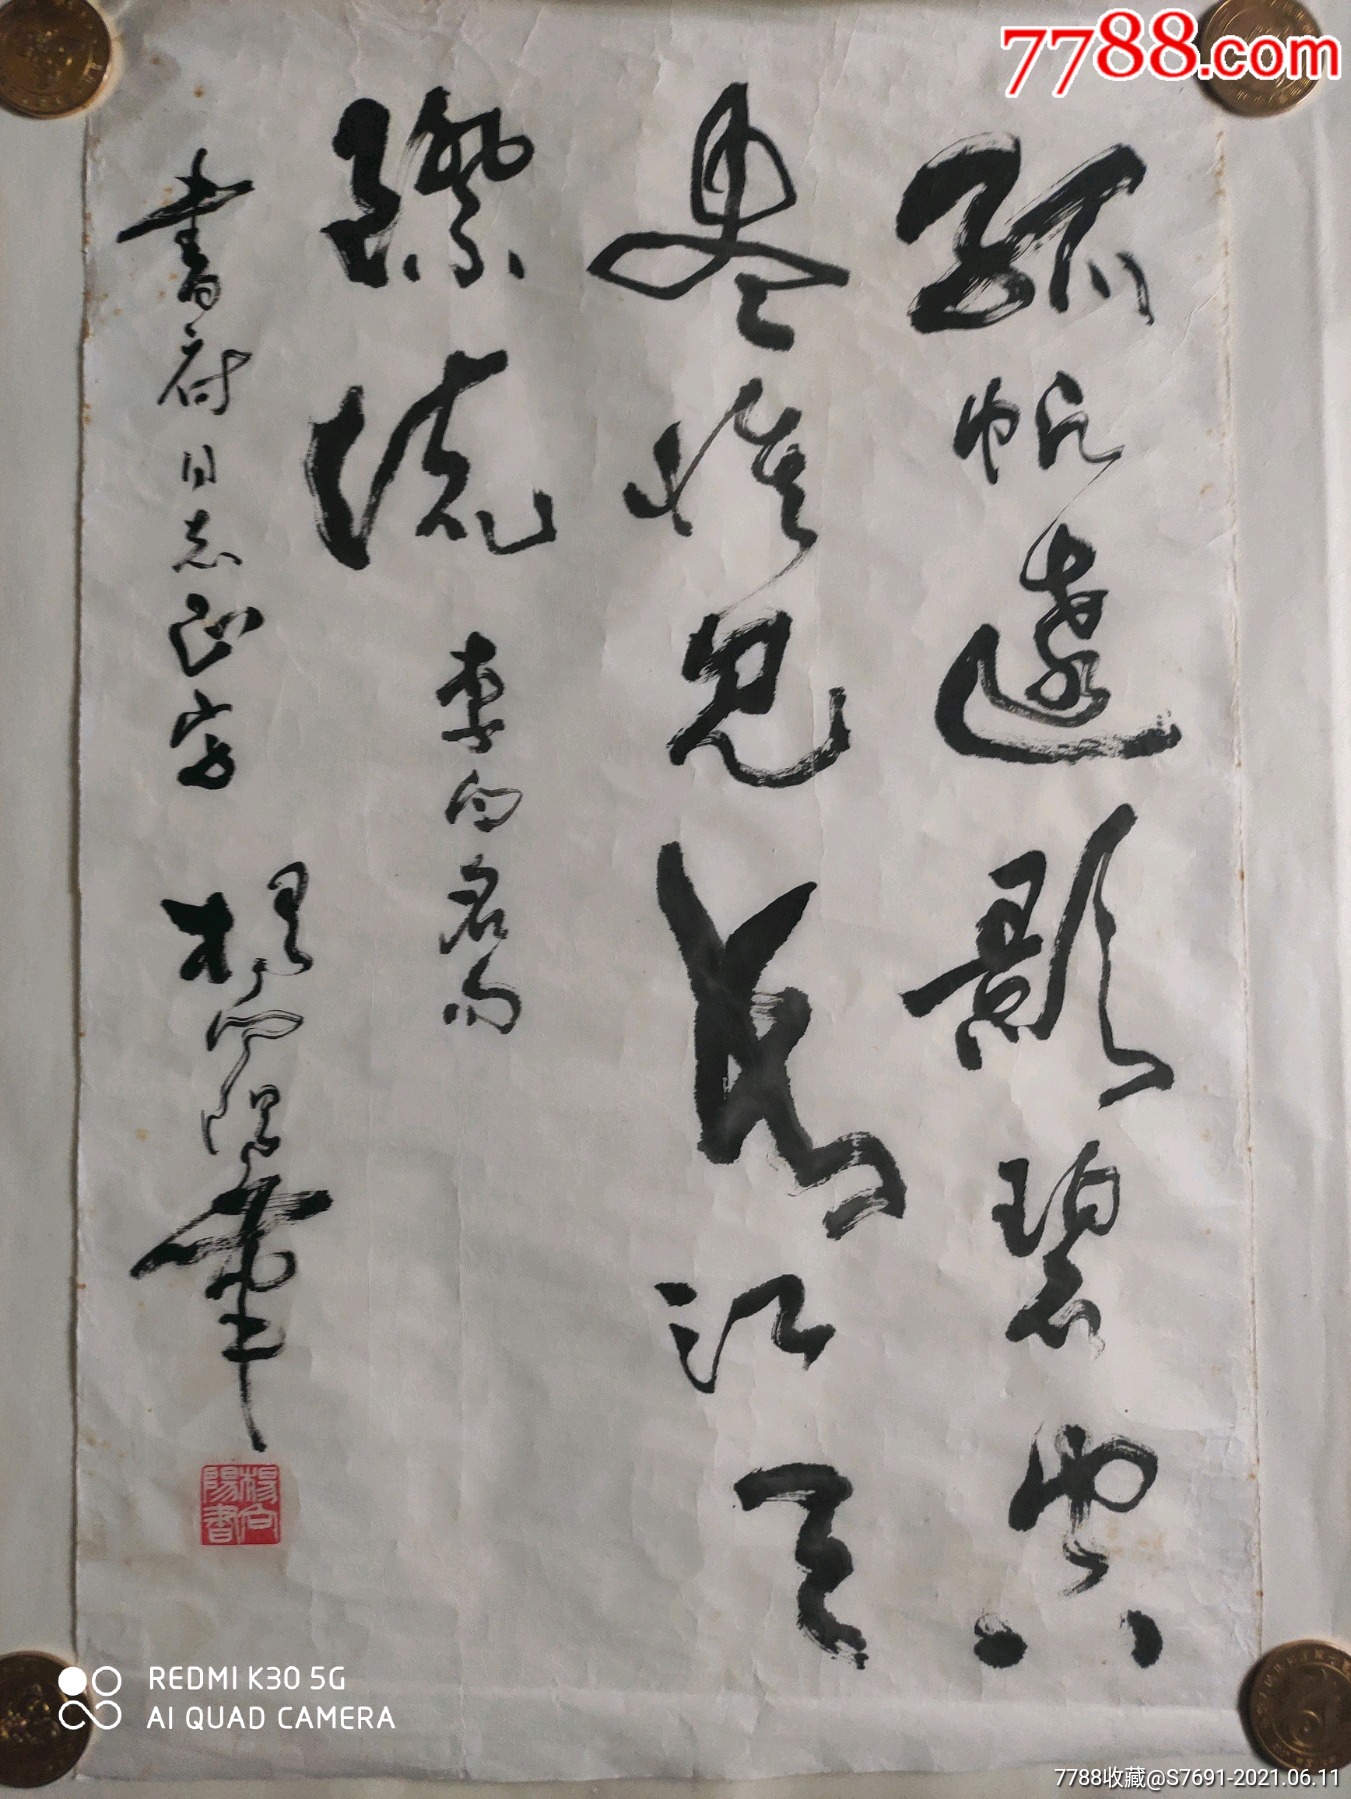 孤帆遠影碧空
盡惟見長江天
際流 李白名句
書府同志正字 楊向陽
楊向陽書
7788.com
REDMI K30 5G
AI QUAD CAMERA
7788收藏@S7691-2021.06.11